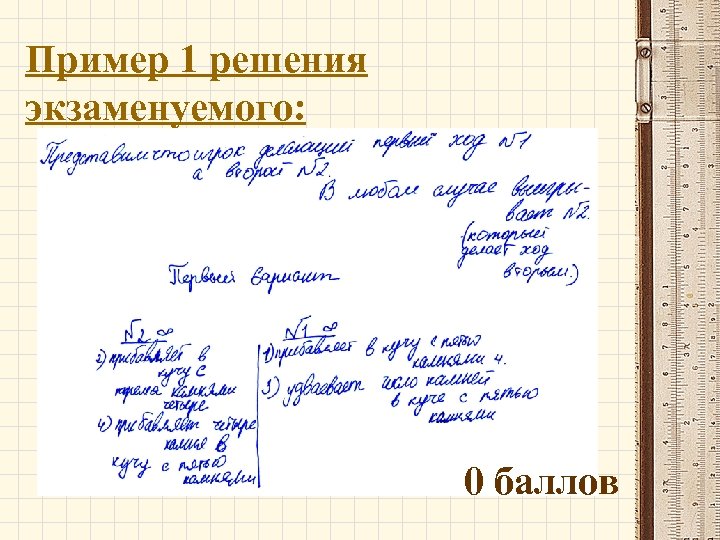 Пример 1 решения
экзаменуемого:
Представим что игрок делающий первый ход №1
а второй №2.
В любом случае выигры-
вает №2.
(который
делает ход
вторым.)
Первый вариант
№2
№1
2) прибавляет в
кучу с
тремя камнями
четыре
4) прибавляет четыре
камня в
кучу с пятью
камнями
1) прибавляет в кучу с пятью
камнями 4.
3) удваевает число камней
в куче с пятью
камнями
0 баллов